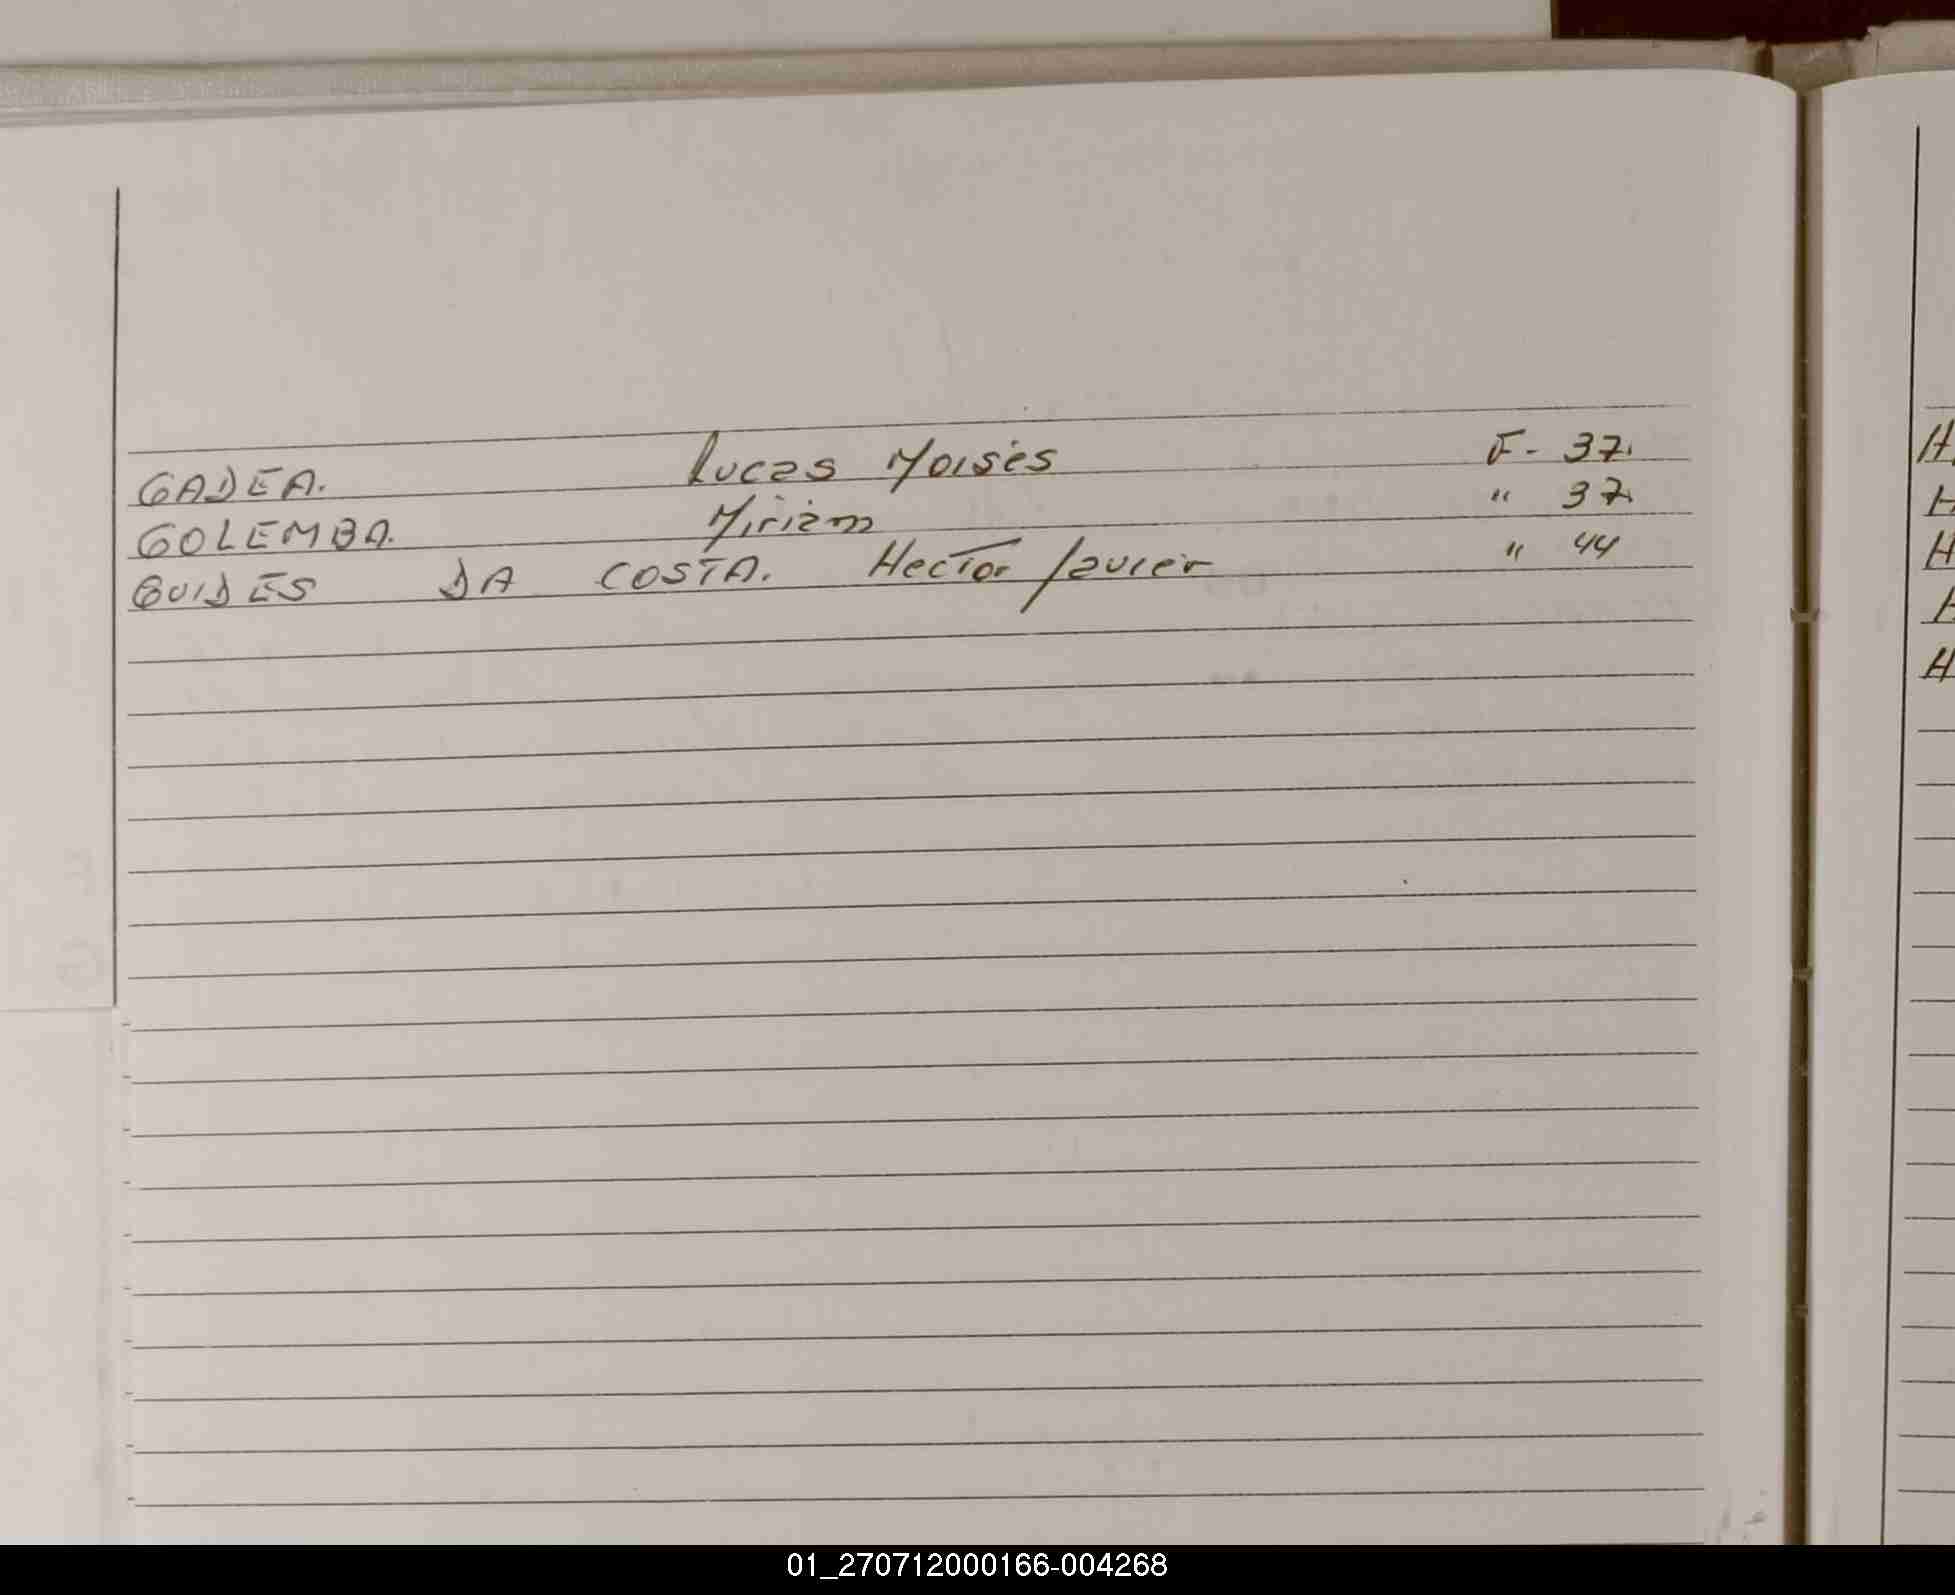 GADEA. Lucas Moisés F- 37.
GOLEMBA. Miriam " 37.
GUIDES DA COSTA. Hector Javier " 44
H
H
H
H
H
01_270712000166-004268